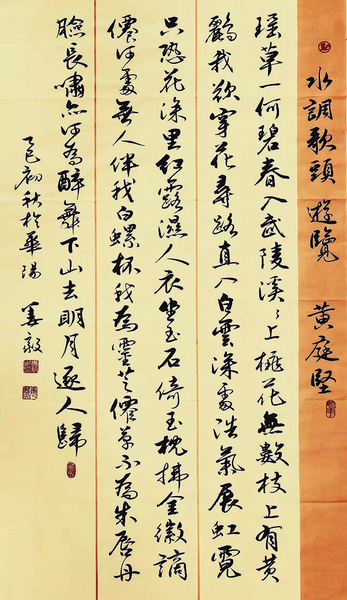 水調歌頭 遊覽 黃庭堅
瑤草一何碧春入武陵溪〻上桃花無數枝上有黃
鸝我欲穿花尋路直入白雲深處浩氣展虹霓
只恐花深里紅露濕人衣坐玉石倚玉枕拂金徽謫
僊何處無人伴我白螺杯我為靈芝僊草不為朱唇丹
臉長嘯亦何為醉舞下山去明月逐人歸
乙巳初秋於華陽 姜毅